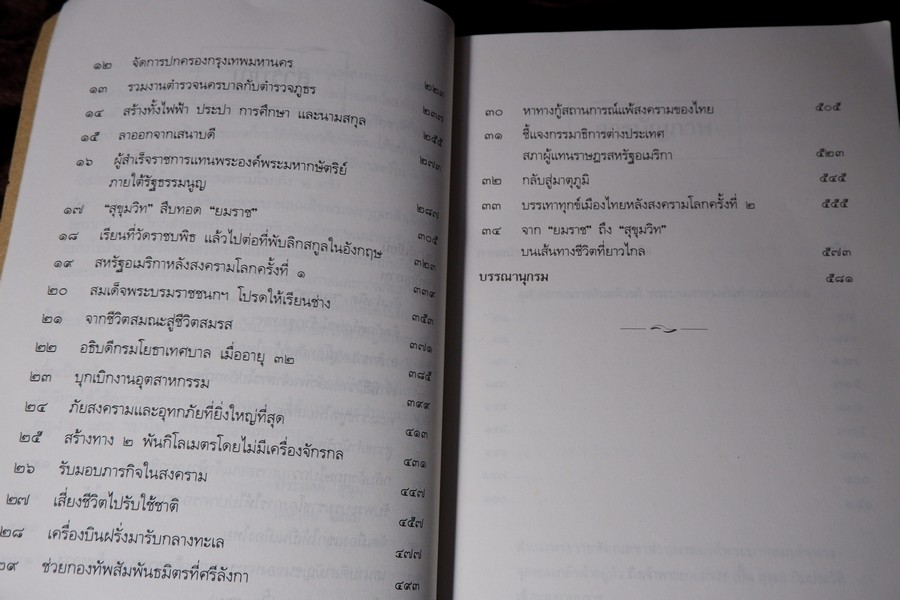 ๑๒ จัดการปกครองกรุงเทพมหานคร ๒๒๑
๑๓ รวมงานตำรวจนครบาลกับตำรวจภูธร ๒๓๗
๑๔ สร้างทั้งไฟฟ้า ประปา การศึกษา และนามสกุล ๒๕๕
๑๕ ลาออกจากเสนาบดี ๒๗๓
๑๖ ผู้สำเร็จราชการแทนพระองค์พระมหากษัตริย์
ภายใต้รัฐธรรมนูญ ๒๘๗
๑๗ “สุขุมวิท” สืบทอด “ยมราช” ๓๐๕
๑๘ เรียนที่วัดราชบพิธ แล้วไปต่อที่พับลิกสกูลในอังกฤษ ๓๒๓
๑๙ สหรัฐอเมริกาหลังสงครามโลกครั้งที่ ๑ ๓๓๙
๒๐ สมเด็จพระบรมราชชนกฯ โปรดให้เรียนช่าง ๓๕๓
๒๑ จากชีวิตสมณะสู่ชีวิตสมรส ๓๗๑
๒๒ อธิบดีกรมโยธาเทศบาล เมื่ออายุ ๓๒ ๓๘๕
๒๓ บุกเบิกงานอุตสาหกรรม ๓๙๙
๒๔ ภัยสงครามและอุทกภัยที่ยิ่งใหญ่ที่สุด ๔๑๓
๒๕ สร้างทาง ๒ พันกิโลเมตรโดยไม่มีเครื่องจักรกล ๔๓๑
๒๖ รับมอบภารกิจในสงคราม ๔๔๗
๒๗ เสี่ยงชีวิตไปรับใช้ชาติ ๔๕๗
๒๘ เครื่องบินฝรั่งมารับกลางทะเล ๔๗๗
๒๙ ช่วยกองทัพสัมพันธมิตรที่ศรีลังกา ๔๙๓
๓๐ หาทางกู้สถานการณ์แพ้สงครามของไทย ๕๐๕
๓๑ ชี้แจงกรรมาธิการต่างประเทศ
สภาผู้แทนราษฎรสหรัฐอเมริกา ๕๒๓
๓๒ กลับสู่มาตุภูมิ ๕๔๕
๓๓ บรรเทาทุกข์เมืองไทยหลังสงครามโลกครั้งที่ ๒ ๕๕๕
๓๔ จาก “ยมราช” ถึง “สุขุมวิท”
บนเส้นทางชีวิตที่ยาวไกล ๕๗๓
บรรณานุกรม ๕๘๑